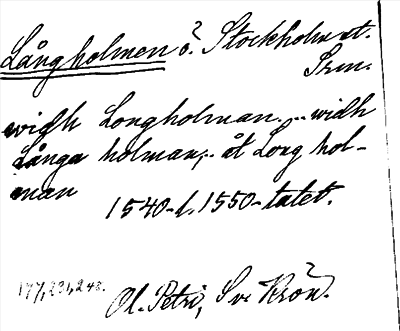 Långholmen ö. Stockholm st.
Srm.
widh Longholman... widh
Långa holman... åt Long hol-
man
1540-t. 1550-talet.
177, 231, 248.
Ol. Petri, Sv. Krön.